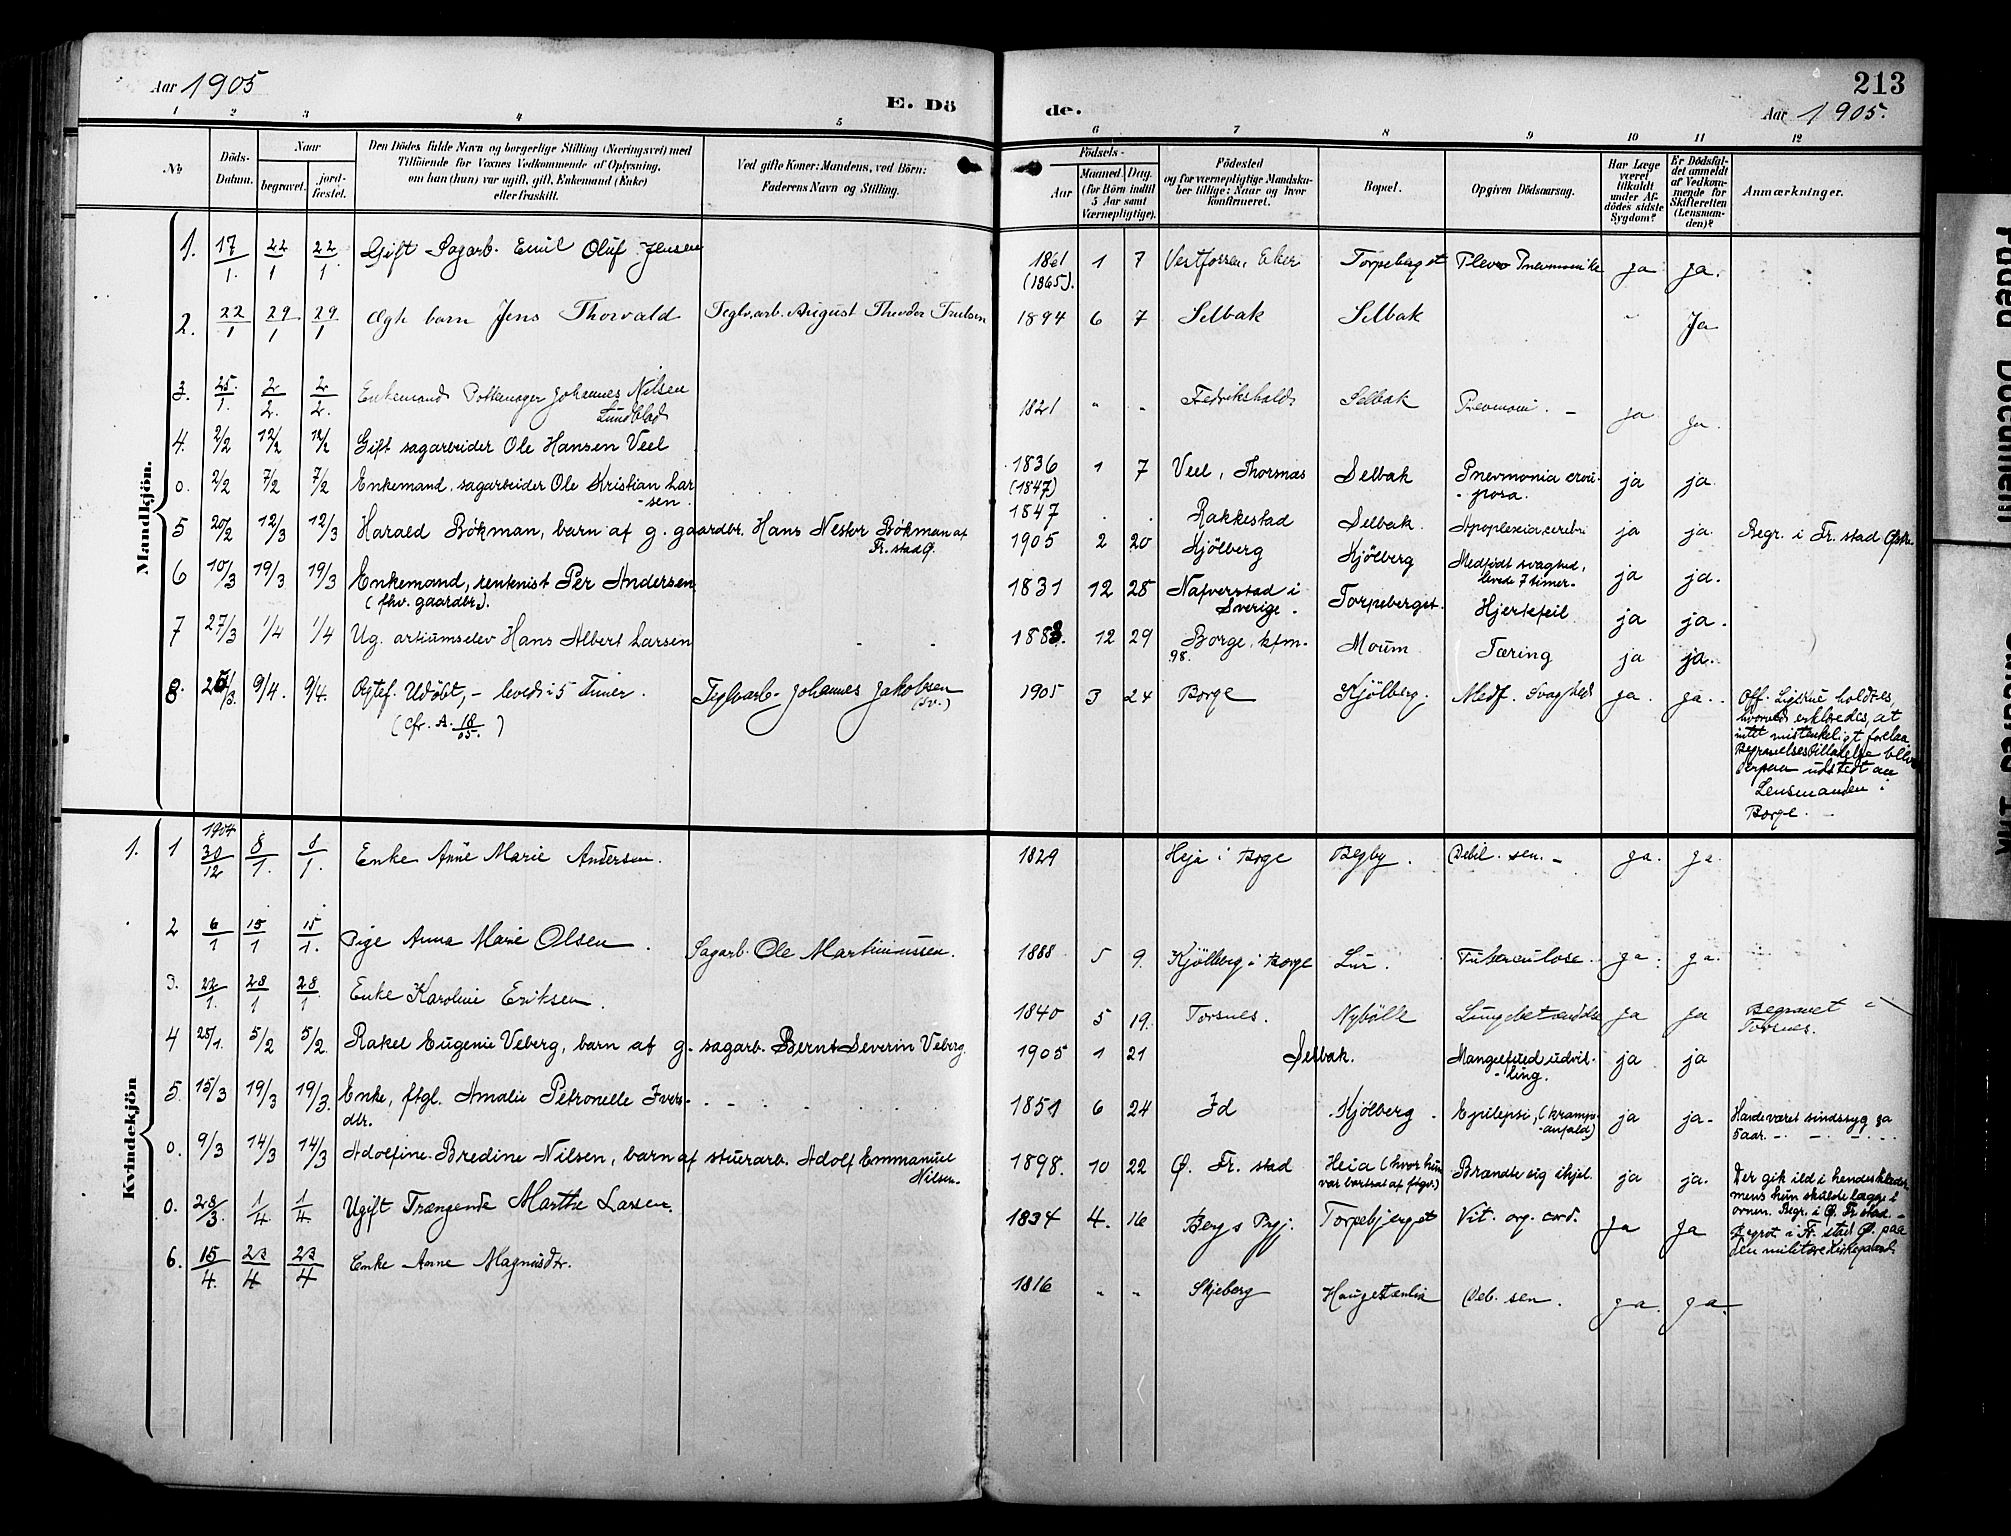 Aar 1905
E. Dö
de.
213
Aar 1905.
1 2 3 4 5 6 7 8 9 10 11 12
No
Döds-Datum.
Naar
begravet.
jord-fæstet.
Den Dödes fulde Navn og borgerlige Stilling (Næringsvei) med
Tilföiende for Voxnes Vedkommende af Oplysning,
om han (hun) var ugift, gift, Enkemand (Enke)
eller fraskilt.
Ved gifte Koner: Mandens, ved Börn:
Faderens Navn og Stilling.
Födsels-
Aar
Maaned. Dag.
(for Börn indtil
5 Aar samt
Værnepligtige).
Födested
og for værnepligtige Mandska-
ber tillige: Naar og hvor
konfirmeret.
Bopæl.
Opgiven Dödsaarsag.
Har Læge
været
tilkaldt
under Af-
dödes sidste
Sygdom?
Er Dödsfal-
det anmeldt
af Vedkom-
mende for
Skifteretten
(Lensman-
den)?
Anmærkninger.
Mandkjön.
1. 17/1. 22/1 22/1. Gift Sagarb. Emil Oluf Jensen 1861 (1865). 1 7 Vestfossen, Eker Torpeberget Plevro Pnevmonike ja ja.
2. 22/1 29/1 29/1 Ægte barn Jens Thorvald Teglv.arb. August Theodor Trulsen 1894 6 7 Selbak Selbak " Ja
3. 25./1. 2/2. 2/2. Enkemand Pottemager Johannes Nilsen
Lundblad 1821 " " Fredrikshald Selbak Pnevmoni. - ja ja.
4. 2/2 12/2 12/2 Gift sagarbeider Ole Hansen Veel 1836 (1847) 1 7 Veel, Thorsnæs Selbak Pnevmonia crou-
-posa. ja ja.
0. 2/2 7/2 7/2 Enkemand, sagarbeider Ole Kristian Lar
-sen. 1847 . . Rakkestad Selbak. Apoplexia cerebri ja ja. Begr. i Fr. stad Østre.
5 20/2 12/3 12/3 Harald Bökman, barn af g. gaardbr. Hans Nestor Bökman af
Fr. stad Ø. 1905 2 20 Kjölberg Kjölberg Medfödt svaghed,
levede 7 timer. ja ja.
6 10/3 19/3 19/3 Enkemand, rentenist Per Andersen
(fhv. gaardbr.). 1831 12 28 Nafverstad i
Sverige. Torpeberget. Hjertefeil ja ja.
7 27/3 1/4 1/4 Ug. artiumselev Hans Albert Larsen - - 1888. 12 29 Borge, kfm.
98. Moum Tæring ja ja.
8. 25/3 9/4. 9/4. Ogtef. Udöbt, - leved i 5 Timer.
(cfr. A. 18/05.) Teglvarb. Johannes Jakobsen
(Sv.) 1905 3 24 Borge Kjölberg. Medf. Svaghed ja. ja. Off. Ligskue holdtes,
hvorved erklæredes, at
intet mistænkeligt forelaa
Begravelsestilladelse blev
derpaa udstedt av
Lensmanden i
Borge.
Kvindekjön
1. 1 1904 30/12 8/1. 8/1. Enke Anne Marie Andersen. 1829 Heja i Borge Begby. Debil. sen. - ja. ja.
2 6/1 15/1 15/1. Pige Anna Marie Olsen. Sagarb. Ole Martinussen. 1888 5 9. Kjölberg i Borge Lur. Tuberculose. ja. ja.
3. 22/1. 28/1 28/1 Enke Karoline Eriksen. 1840 5 19. Torsnes. Nybölle Lungebetændelse ja ja Begravet i
Torsnes.
4 25/1. 5/2 5/2. Rakel Eugenie Veberg, barn af g. sagarb. Bernt Severin Veberg. 1905 1 21 Selbak. Mangelfuld udvik-
-ling. ja ja
5. 15/3 19/3 19/3. Enke, ftgl. Amalie Petronelle Ivers-
dtr. 1851 6 24 Id Kjölberg. Epilepsi, (krampe
-anfald) ja ja. Havde været sindssyg ca
5 aar.
0. 9/3 14/3 14/3 Adolfine Bredine Nilsen, barn af stuerarb. Adolf Emmanuel
Nilsen. 1898. 10 22 Ø. Fr. stad Heia (hvor hun
var bortsat af ftgv.) Brændte sig ihjel. ja ja. Der gik ild i hendes klæder
mens hun skulde lægge i
ovnen. Begr. i Ø. Fr. stad.
0. 28/3. 1/4. 1/4 Ugift Trængende Marthe Larsen. 1834 4. 16 Bergs Pgj. Torpebjerget Vit. org. cord. ja ja Begrvt. i Fr. stad Ø. paa
den militære kirkegaard.
6. 15/4. 23/4 23/4 Enke Anne Magnusdtr. 1816 " " Skjeberg Haugestenlia Deb. sen. ja. ja.